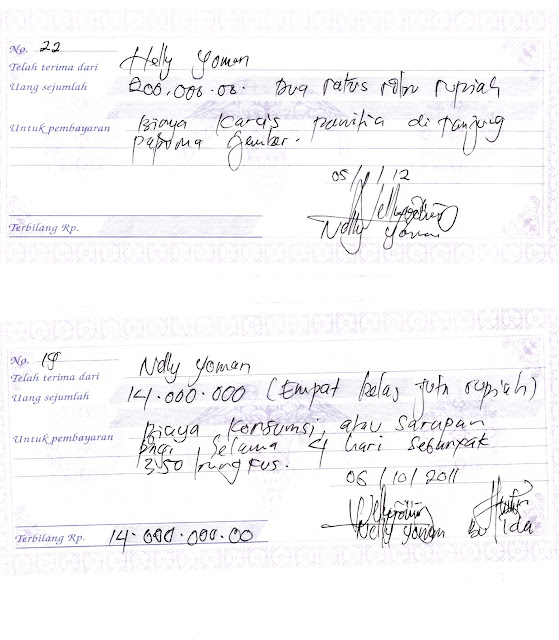 No. 22
Telah terima dari Helly Yoman
Uang sejumlah 200.000.00. Dua ratus ribu rupiah
Untuk pembayaran Biaya Karcis panitia di Tanjung
papuma Jember.
05/ /12
Terbilang Rp.
Nelly Yoman
No. 19
Telah terima dari Nelly Yoman
Uang sejumlah 14.000.000 (Empat belas juta rupiah)
Untuk pembayaran Biaya Konsumsi, atau Sarapan
pagi Selama 4 hari sebanyak
350 bungkus.
06/10/2011
Terbilang Rp. 14.000.000.00
Nelly Yoman Bu Ida